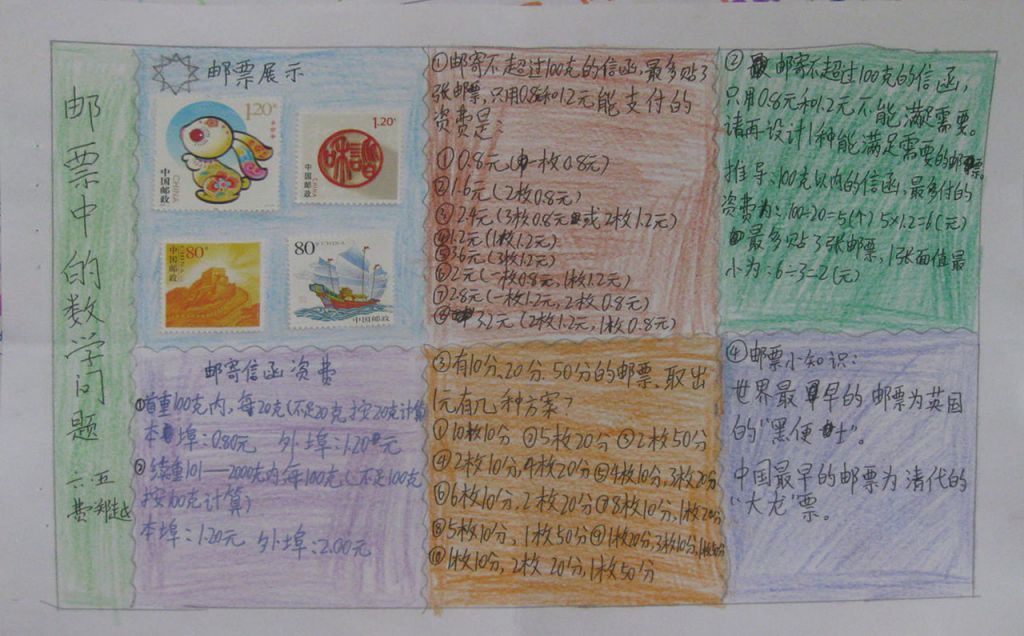 邮票中的数学问题
六.五
费郑越
邮票展示
1.20元
中国邮政
CHINA
1.20元
和諧
中国邮政
CHINA
80分
中国邮政
80分
CHINA
中国邮政
邮寄信函资费
①首重100克内,每20克(不足20克按20克计算
本埠:0.80元 外埠:1.20元
②续重101—2000克内每100克(不足100克
按100克计算)
本埠:1.20元 外埠:2.00元
①邮寄不超过100克的信函,最多贴3
张邮票,只用0.8和1.2元能支付的
资费是:
①0.8元(一枚0.8元)
②1.6元(2枚0.8元)
③2.4元(3枚0.8元或2枚1.2元)
④1.2元(1枚1.2元)
⑤3.6元(3枚1.2元)
⑥2元(一枚0.8元,1枚1.2元)
⑦2.8元(一枚1.2元,2枚0.8元)
⑧3.2元(2枚1.2元,1枚0.8元)
③有10分、20分、50分的邮票,取出
1元有几种方案?
①10枚10分 ②5枚20分 ③2枚50分
④2枚10分,4枚20分⑤4枚10分,3枚20分
⑥6枚10分,2枚20分⑦8枚10分,1枚20分
⑧5枚10分,1枚50分⑨1枚20分,3枚10分,1枚50分
⑩1枚10分,2枚20分,1枚50分
②邮寄不超过100克的信函,
只用0.8元和1.2元不能满足需要。
请再设计1种能满足需要的邮票
推导:100克以内的信函,最多付的
资费为:100÷20=5(个) 5×1.2=6(元)
最多贴3张邮票,1张面值最
小为:6÷3=2(元)
④邮票小知识:
世界最早的邮票为英国
的“黑便士”。
中国最早的邮票为清代的
“大龙”票。